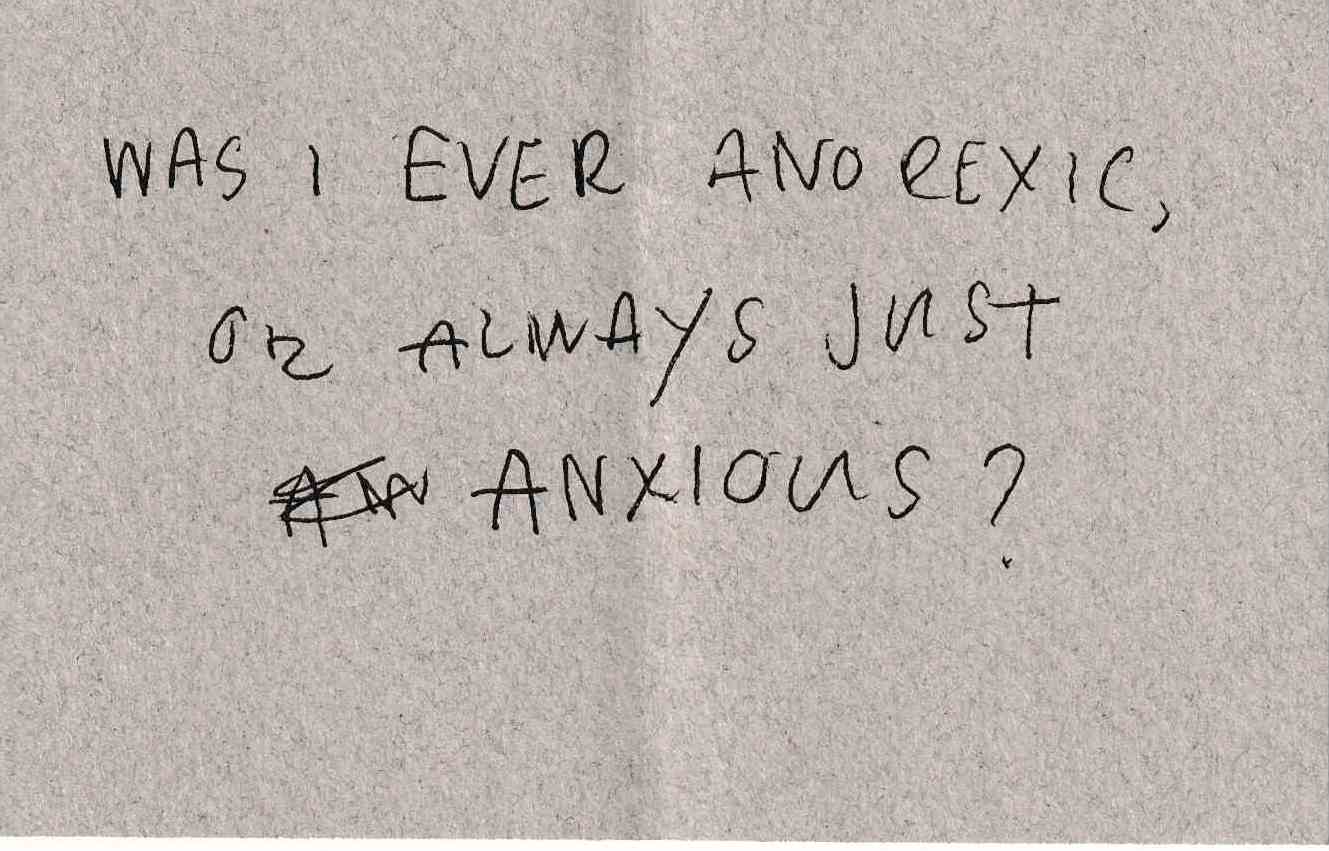 WAS I EVER ANOREXIC,
OR ALWAYS JUST
AN ANXIOUS?